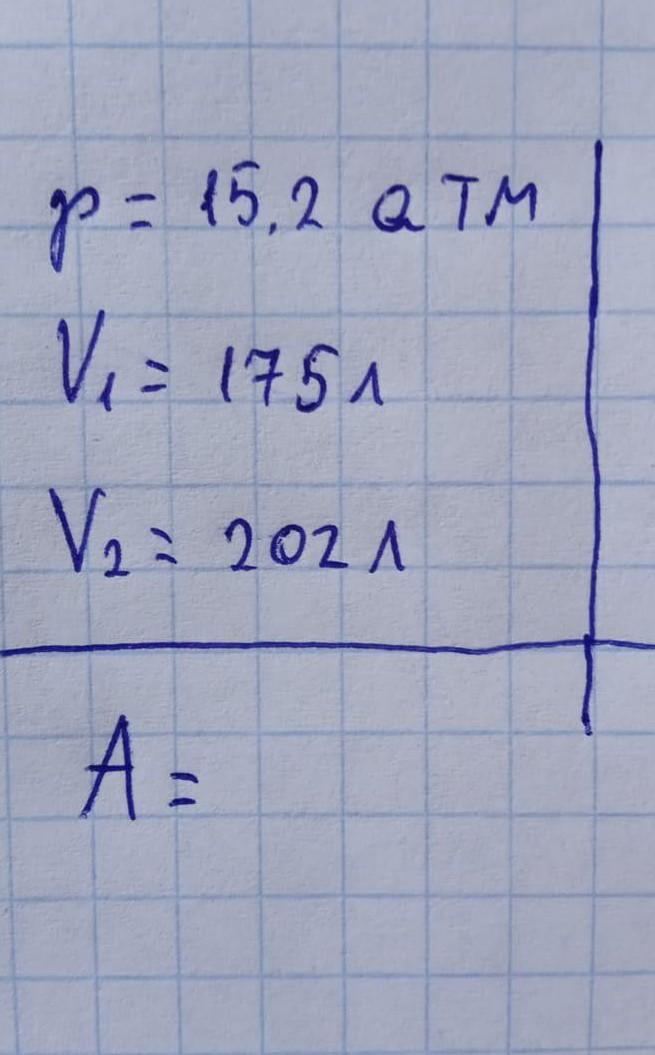 p = 15,2 атм
V₁ = 175 л
V₂ = 202 л
A =